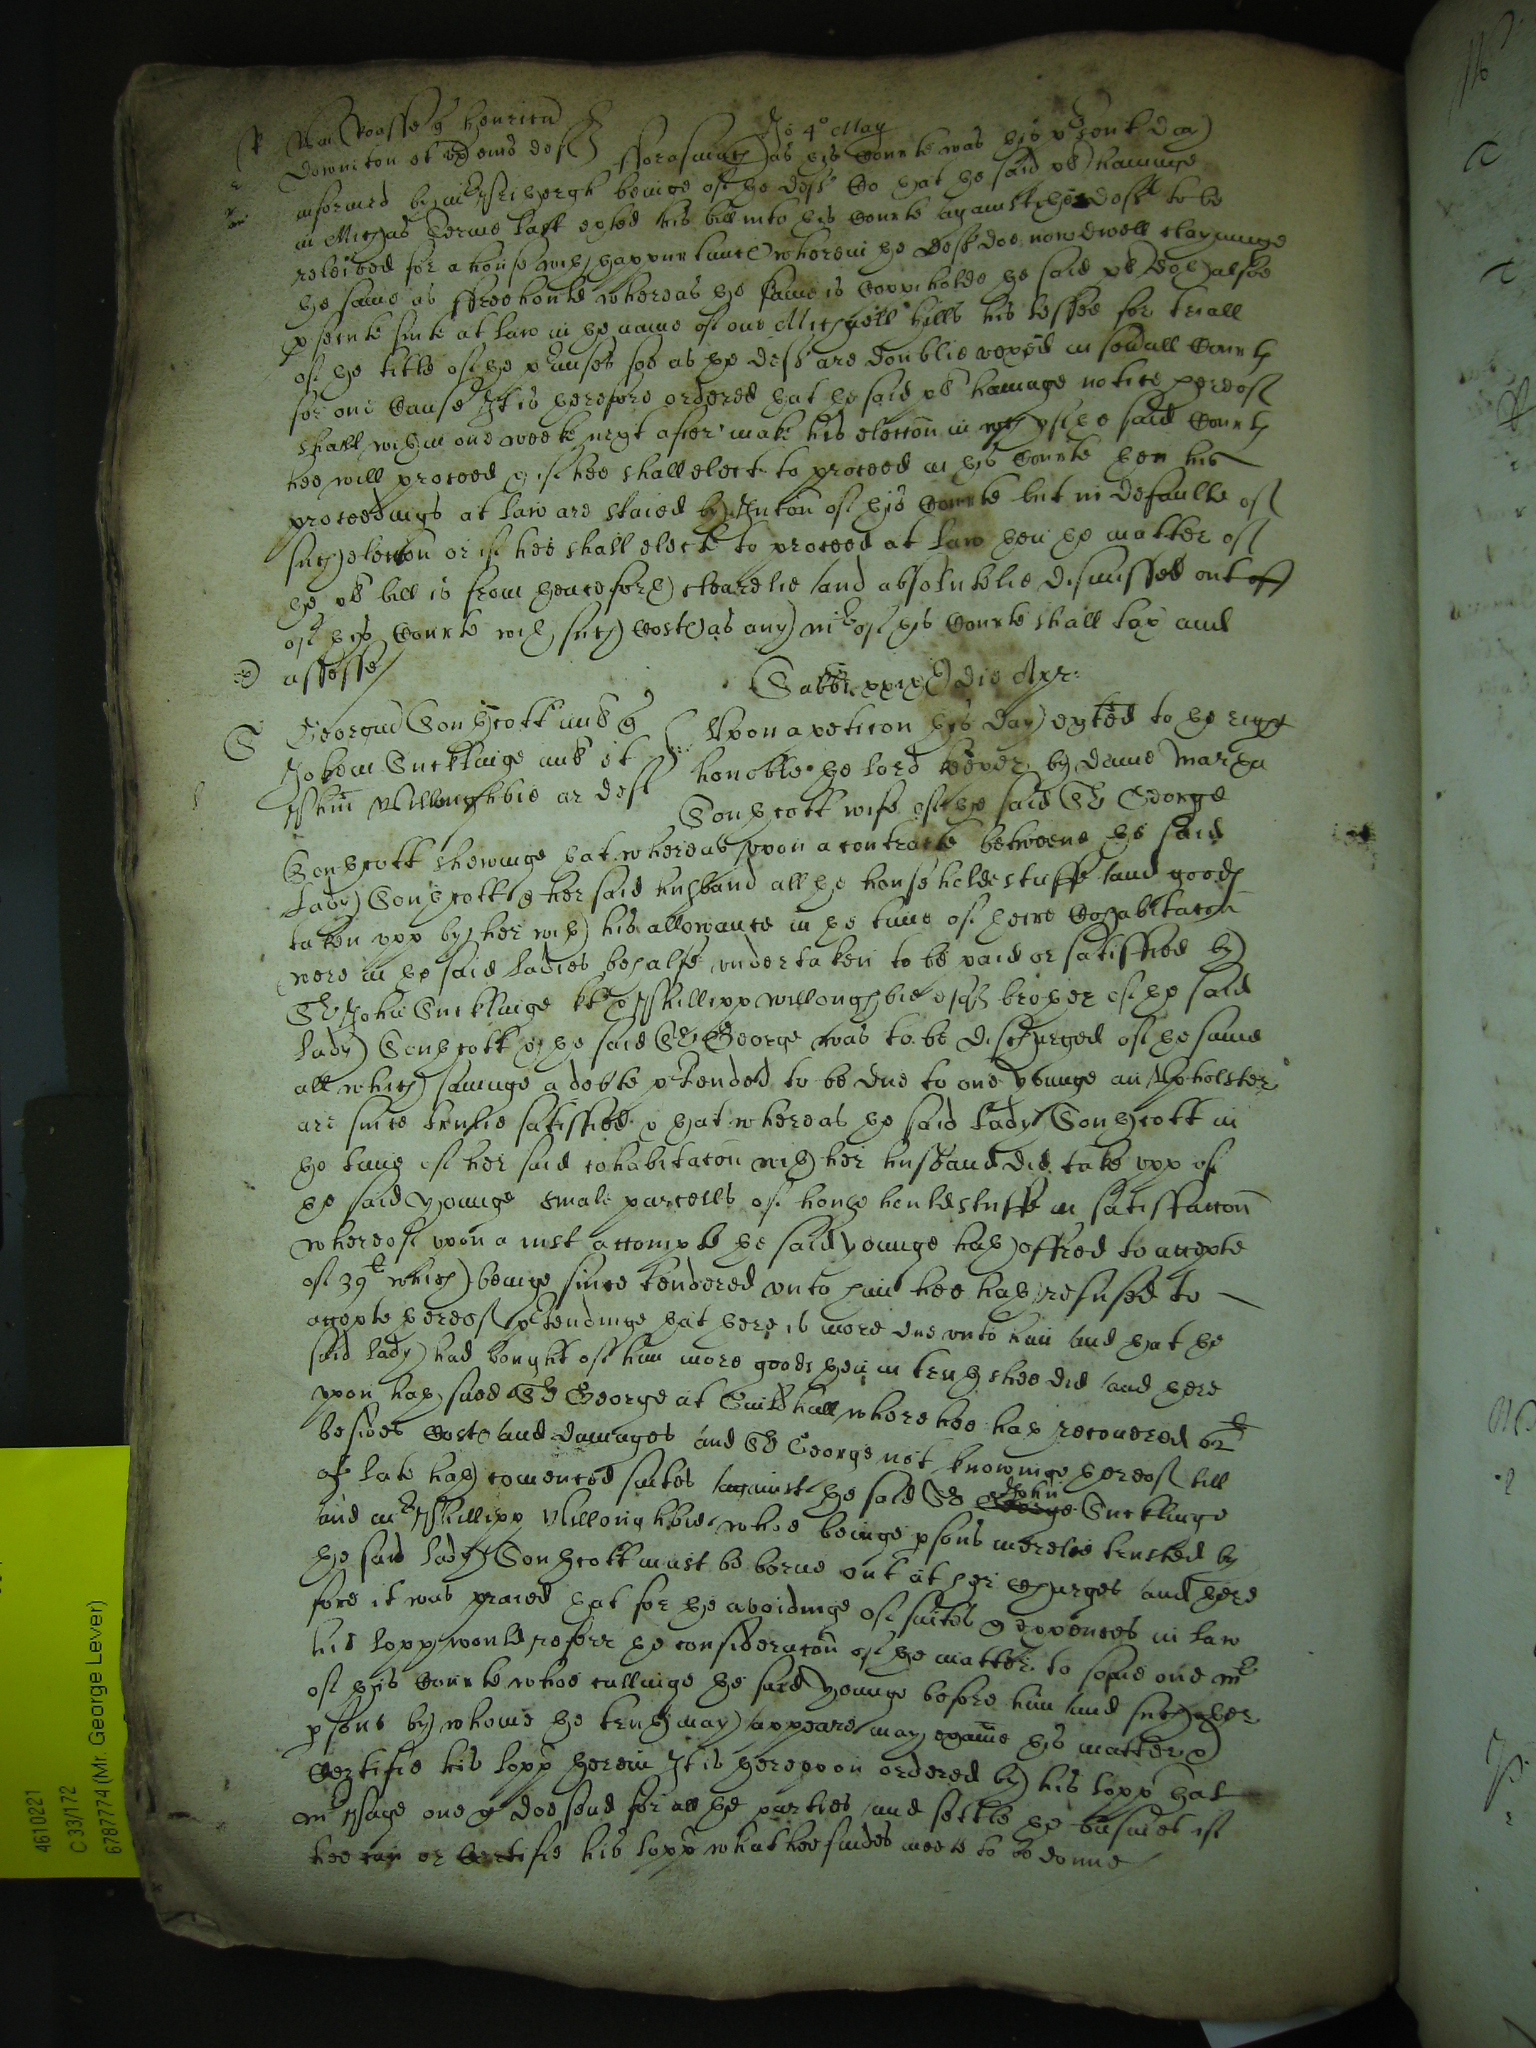 Jo 4° May
Downton et defts fforasmuch as this Courte was this pñt day
informed by beinge of the deftes Co that the said plt havinge
in Michas Terme last exhted his bill into this Courte against the deftes to be
releived for a house wth thappurtunces wherein the deftes doe now dwell clayminge
the same as ffreehould whereas the same is Coppiholde the said plt doth alsoe
psecute suite at law in the name of one Michaell Hills his lessee for triall
of the title of the pmisses soe as the deftes are doublie vexed in seuall Courts
for one Cause It is therefore ordered that the said plt havinge notice thereof
shall wthin one weeke next after make his eleccon in wch of the said Courts
hee will proceed & if hee shall elect to proceed in this Courte then his
proceedings at law are staied by Iniuccon of this Courte but in defaulte of
such eleccon or if hee shall elect to proceed at law then the matter of
the plts bill is from henceforth clearelie and absolutelie dismissed out of
of this Courte wth such Costs as any mr of this Courte shall tax and
assesse
Sabbti xxix die Apr:
Georgius Southcott miles &
Johem Sucklinge miles et
Phim Willoughbie ar deft
Vpon a peticon this day exhted to the right
honoble the lord keeper by dame Martha
Southcott wife of the said Sr George
Southcott shewinge that whereas vpon a contracte betweene the said
Lady Southcott & her said husband all the househoulde stuffe and goods
taken vpp by her wth his allowance in the time of theire Cohabitacon
were in the said ladies behalfe vndertaken to be paid or satisffied by
Sr John Sucklinge kt & Phillipp Willoughbie esqr brother of the said
Lady Southcott & the said Sr George was to be discharged of the same
all which savinge a debte ptended to be due to one Younge an Vpholster
are since trulie satisffied & that whereas the said Lady Southcott in
the time of her said cohabitacon wth her husband did take vpp of
the said Younge smale parcells of househouldstuffe in satisffaccon
whereof vpon a iust accompte the said Younge hath offred to accepte
of 39l which beinge since tendered vnto him hee hath refused to
accepte thereof ptendinge that there is more due vnto him and that the
said lady had bought of him more goods then in truth shee did and there
vpon hath sued Sr George at Guildhall where hee hath recouered 62l
besides Costs and damages and Sr George not knowinge thereof till
of late hath comenced suites against the said Sr George John Sucklinge
and mr Phillipp Willoughbie whoe beinge psons merelie trusted by
the said lady Southcott must be borne out at her charges and there
fore it was praied that for the avoidinge of suites & expences in law
his lopp would referr the consideracon of the matter to some one mr
of this Courte whoe callinge the said Younge before him and such other
psons by whome the truth may appeare may exaine this matter &
Certifie his lopp therein It is therevpon ordered by his lopp that
mr Page one &c doe send for all the parties and settle the busines if
hee can or Certifie his lopp what hee findes meete to be donne
4610221
C 33/172
6787774 (Mr. George Lever)